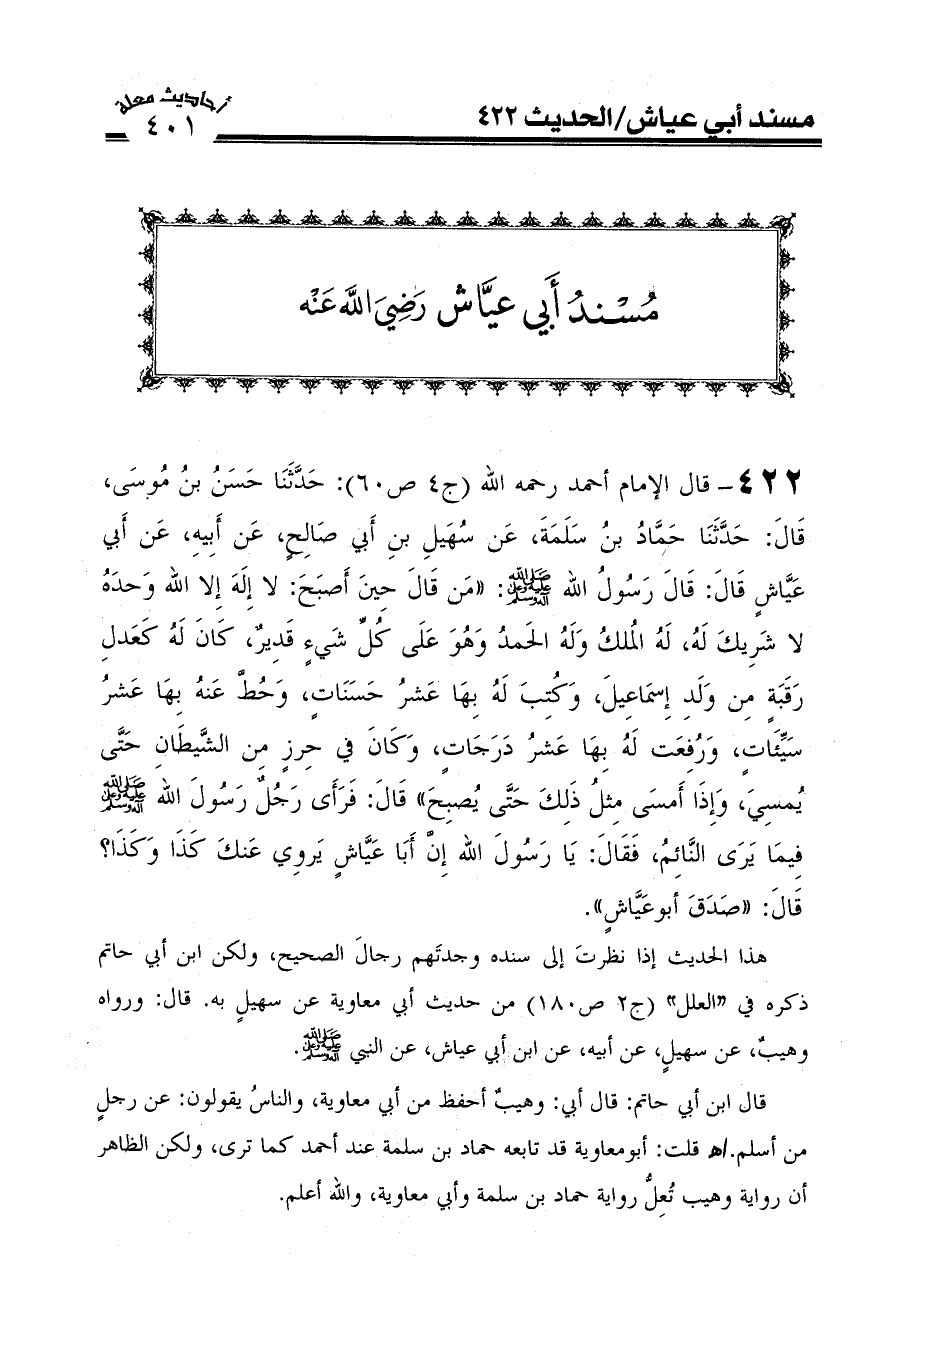 مسند أبي عياش/الحديث ٤٢٢
أحاديث معلة
٤٠١
مُسْنَدُ أَبِي عيَّاش رَضِيَ اللَّه عَنْه
٤٢٢- قال الإمام أحمد رحمه الله (ج٤ ص٦٠): حَدَّثَنَا حَسَنُ بنُ مُوسَى،
قَالَ: حَدَّثَنَا حَمَّادُ بنُ سَلَمَةَ، عَن سُهَيلِ بنِ أَبِي صَالِحٍ، عَن أَبِيهِ، عَن أَبِي
عَيَّاشٍ قَالَ: قَالَ رَسُولُ الله ﷺ: «مَن قَالَ حِينَ أَصبَحَ: لا إِلَهَ إلا الله وَحدَهُ
لا شَرِيكَ لَهُ، لَهُ الُملكُ وَلَهُ الحَمدُ وَهُوَ عَلَى كُلِّ شَيءٍ قَدِيرٌ، كَانَ لَهُ كَعَدلِ
رَقَبَةٍ مِن وَلَدِ إِسمَاعِيلَ، وَكُتِبَ لَهُ بِهَا عَشرُ حَسَنَاتٍ، وَحُطَّ عَنهُ بِهَا عَشرُ
سَيِّئَاتٍ، وَرُفِعَت لَهُ بِهَا عَشرُ دَرَجَاتٍ، وَكَانَ فِي حِرزٍ مِن الشَّيطَانِ حَتَّى
يُمسِيَ، وَإِذَا أَمسَى مِثلُ ذَلِكَ حَتَّى يُصبِحَ» قَالَ: فَرَأَى رَجُلٌ رَسُولَ الله ﷺ
فِيمَا يَرَى النَّائِمُ، فَقَالَ: يَا رَسُولَ الله إِنَّ أَبَا عَيَّاشٍ يَروِي عَنكَ كَذَا وَكَذَا؟
قَالَ: «صَدَقَ أبوعَيَّاشٍ».
هذا الحديث إذا نظرتَ إلى سنده وجدتَهم رجالَ الصحيح، ولكن ابن أبي حاتم
ذكره في "العلل" (ج٢ ص١٨٠) من حديث أبي معاوية عن سهيلٍ به. قال: ورواه
وهيبٌ، عن سهيلٍ، عن أبيه، عن ابن أبي عياش، عن النبي ﷺ.
قال ابن أبي حاتم: قال أبي: وهيبٌ أحفظ من أبي معاوية، والناسُ يقولون: عن رجلٍ
من أسلم.اهـ قلت: أبومعاوية قد تابعه حماد بن سلمة عند أحمد كما ترى، ولكن الظاهر
أن رواية وهيب تُعِلُّ رواية حماد بن سلمة وأبي معاوية، والله أعلم.